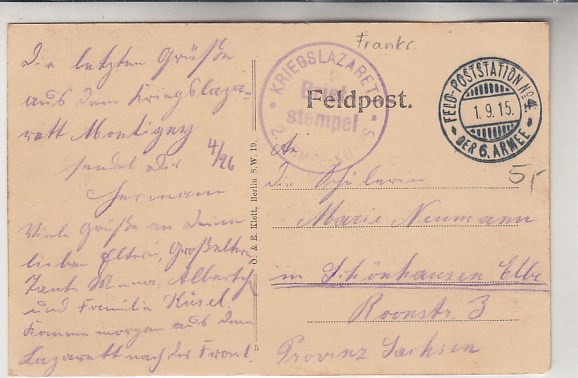 Die letzten Grüße
aus dem Kriegslaza-
rett Montigny
sendet Dir 4/26
Hermann
Viele Grüße an Deine
lieben Eltern, Großeltern
Tante Minna, Albertch
und Familie Küsel.
Komme morgen aus dem
Lazarett nach der Front.
O. & E. Klett, Berlin S.W. 19.
Frankr.
KRIEGSLAZARETT
Brief-
stempel
Feldpost.
FELD-POSTSTATION No 4.
1.9.15.
DER 6. ARMEE
5,-
An
die Schülerin
Marie Neumann
in Schönhausen Elbe
Roonstr. 3
Provinz Sachsen